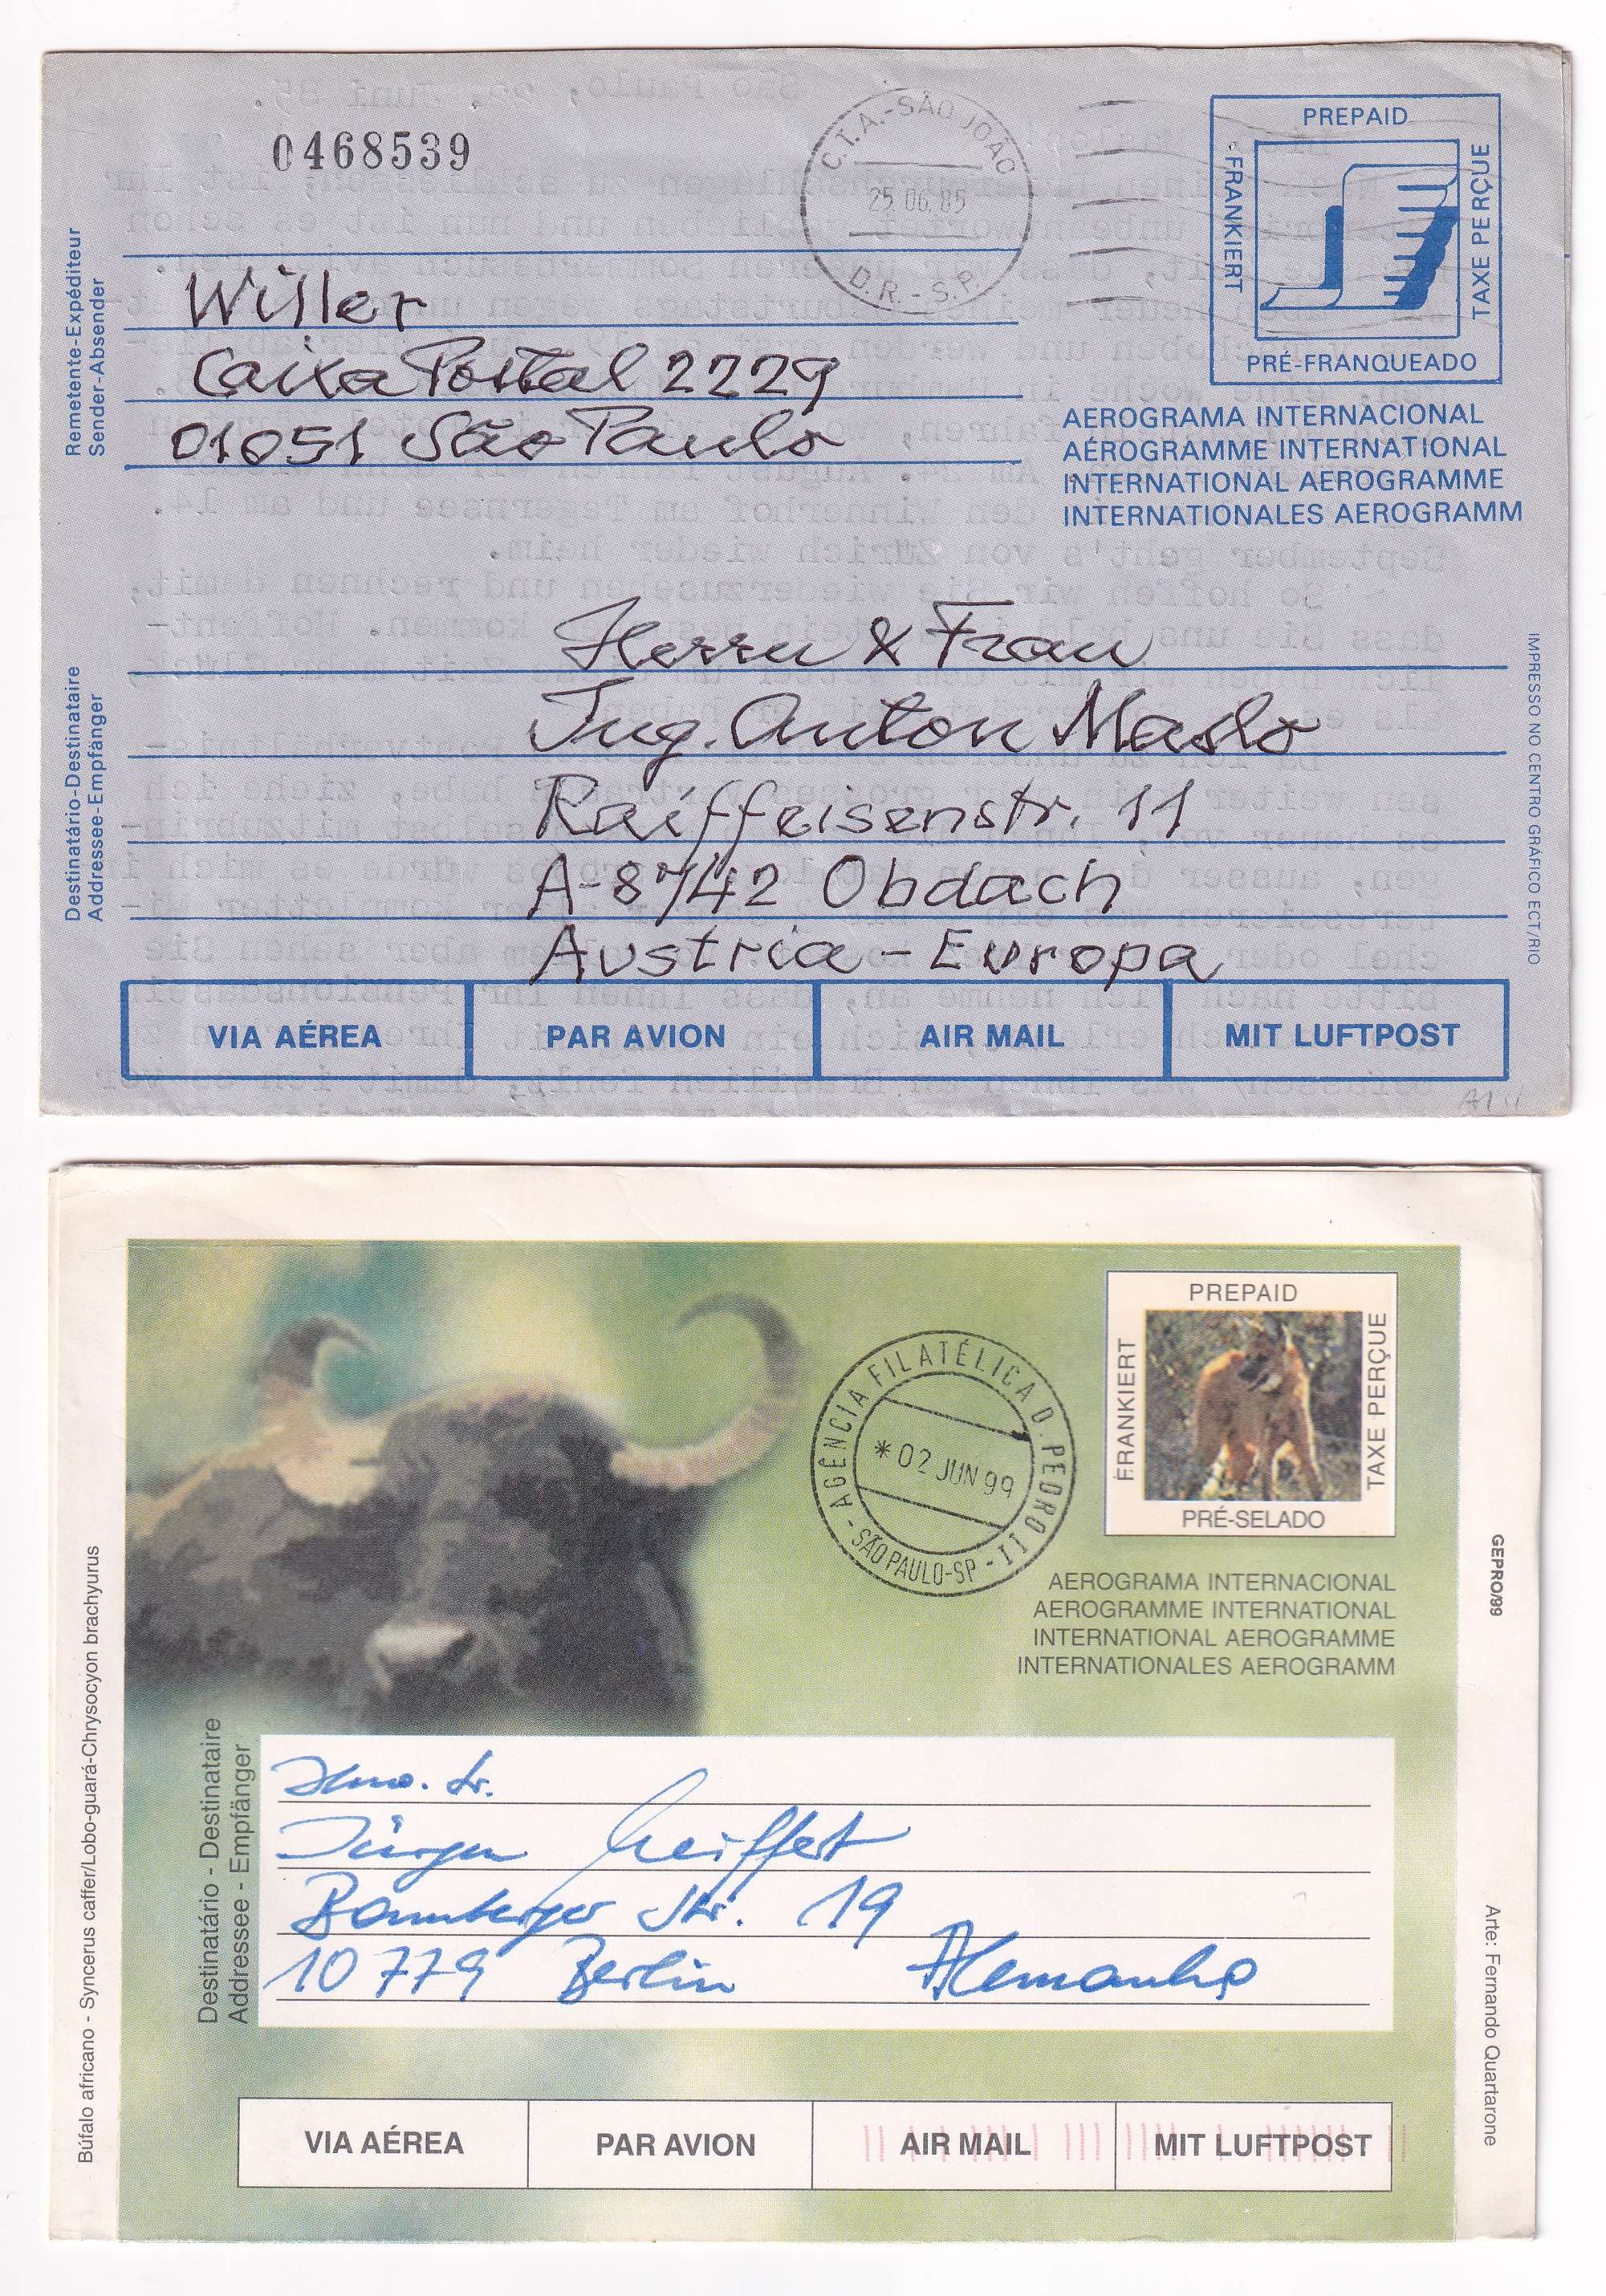 0468539
C.T.A.-SÃO JOÃO
25 06.85
D.R.-S.P.
PREPAID
FRANKIERT
TAXE PERÇUE
PRÉ-FRANQUEADO
Remetente-Expéditeur
Sender-Absender
Willer
Caixa Postal 2229
01051 São Paulo
AEROGRAMA INTERNACIONAL
AÉROGRAMME INTERNATIONAL
INTERNATIONAL AEROGRAMME
INTERNATIONALES AEROGRAMM
Destinatário-Destinataire
Addressee-Empfänger
Herrn & Frau
Ing. Anton Maslo
Raiffeisenstr. 11
A-8742 Obdach
Austria - Europa
IMPRESSO NO CENTRO GRÁFICO ECT/RIO
VIA AÉREA
PAR AVION
AIR MAIL
MIT LUFTPOST
AGÊNCIA FILATÉLICA D. PEDRO II
*02 JUN 99
- SÃO PAULO-SP -
PREPAID
FRANKIERT
TAXE PERÇUE
PRÉ-SELADO
AEROGRAMA INTERNACIONAL
AEROGRAMME INTERNATIONAL
INTERNATIONAL AEROGRAMME
INTERNATIONALES AEROGRAMM
GEPRO/99
Búfalo africano - Syncerus caffer/Lobo-guará-Chrysocyon brachyurus
Destinatário - Destinataire
Addressee - Empfänger
Ilmo. Sr.
Jürgen
Bamberger Str. 19
10779 Berlin Alemanha
Arte: Fernando Quartarone
VIA AÉREA
PAR AVION
AIR MAIL
MIT LUFTPOST